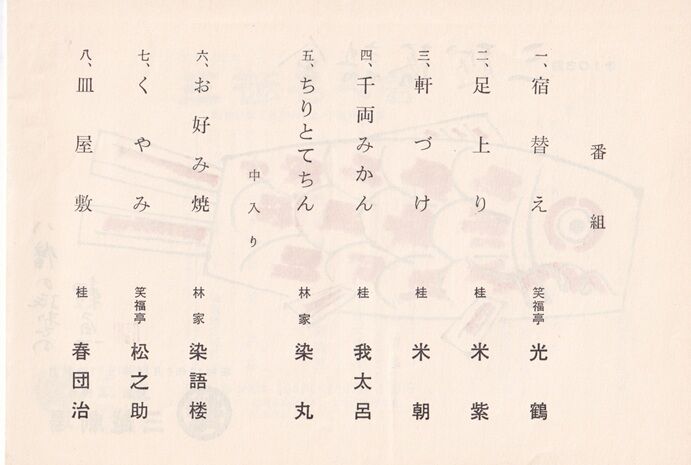 番組
一、宿替え 笑福亭 光鶴
二、足上り 桂 米紫
三、軒づけ 桂 米朝
四、千両みかん 桂 我太呂
五、ちりとてちん 林家 染丸
中入り
六、お好み焼 林家 染語楼
七、くやみ 笑福亭 松之助
八、皿屋敷 桂 春団治